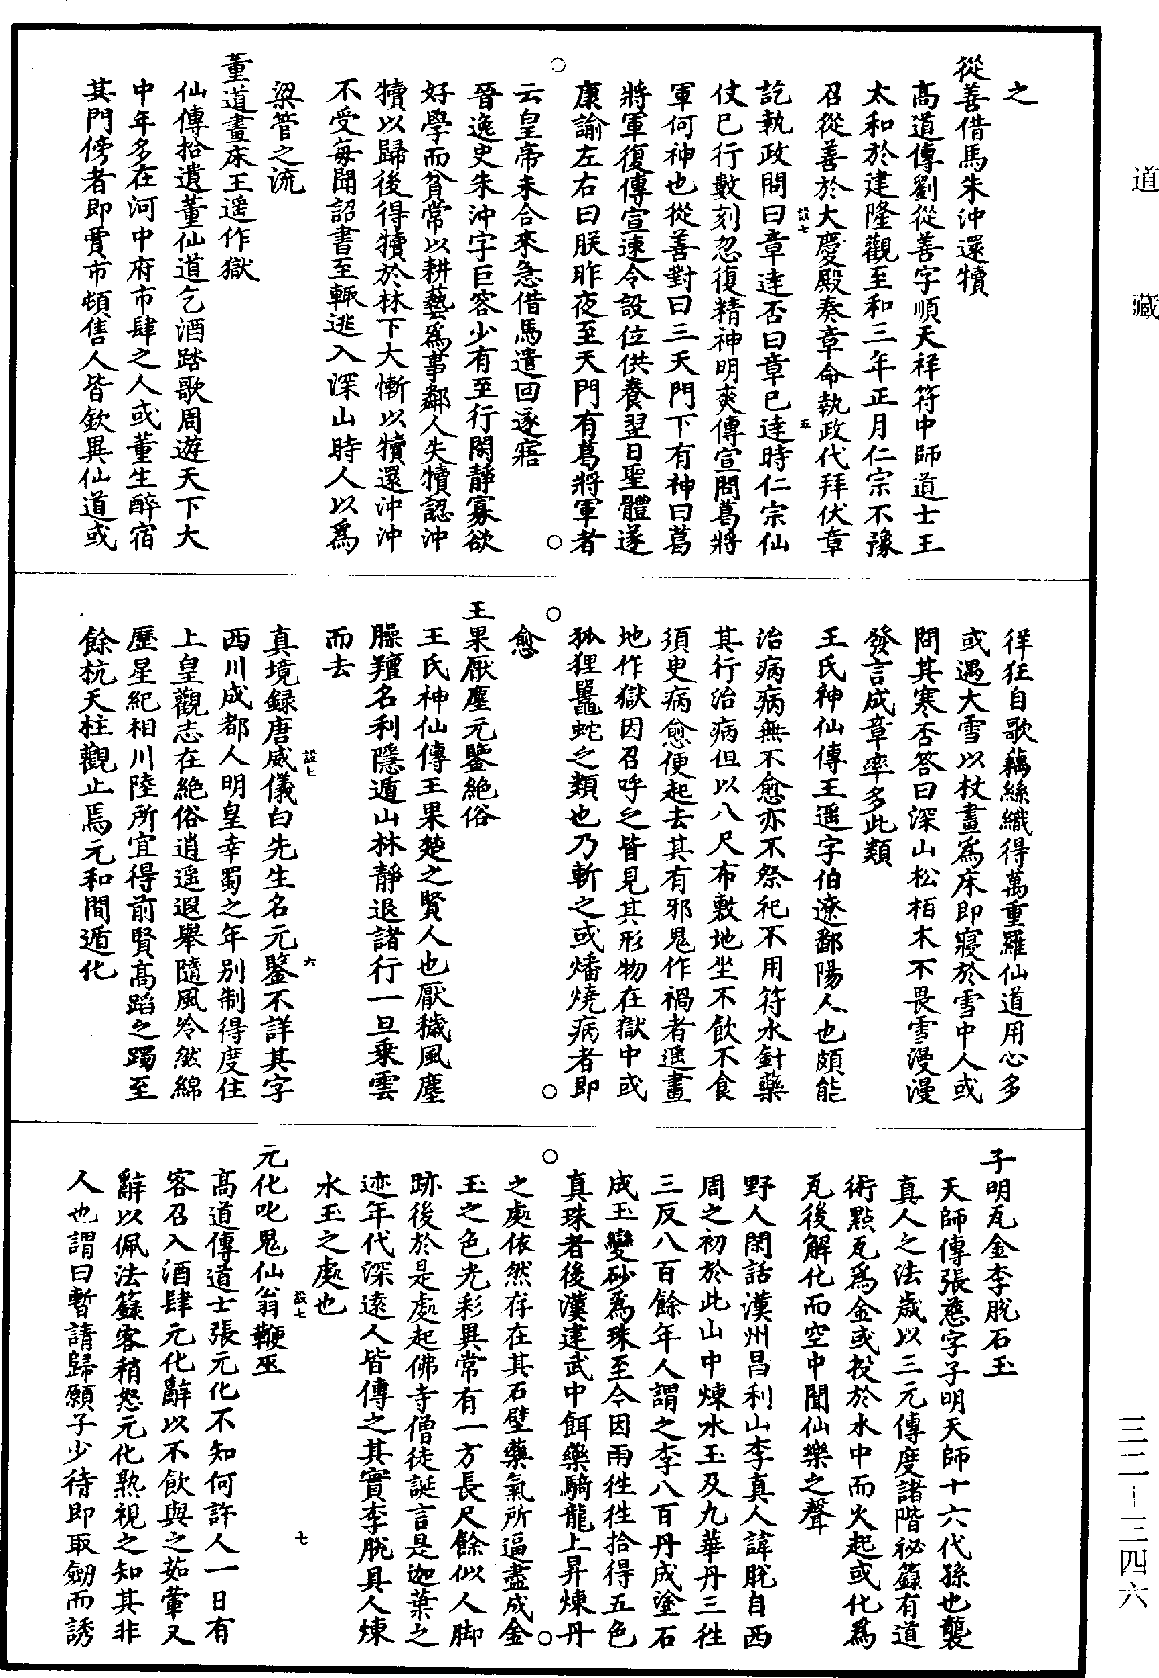 道藏
三二-三四六
之
從善借馬朱沖還犢
高道傳劉從善字順天祥符中師道士王
太和於建隆觀至和三年正月仁宗不豫
召從善於大慶殿奏章命執政代拜伏章
訖執政問曰章達否曰章已達時仁宗仙
設七
五
仗已行數刻忽復精神明爽傳宣問葛將
軍何神也從善對曰三天門下有神曰葛
將軍復傳宣速令設位供養翌日聖體遂
康諭左右曰朕昨夜至天門有葛將軍者
云皇帝未合來急借馬遣回遂寤
晉逸史朱沖字巨容少有至行閑靜寡欲
好學而貧常以耕藝爲事鄰人失犢認沖
犢以歸後得犢於林下大慚以犢還沖沖
不受每聞詔書至輒逃入深山時人以爲
梁管之流
董道畫床王遥作獄
仙傳拾遺董仙道乞酒踏歌周遊天下大
中年多在河中府市肆之人或董生醉宿
其門傍者即賣市頓售人皆欽異仙道或
徉狂自歌藕絲織得萬重羅仙道用心多
或遇大雪以杖畫爲床即寢於雪中人或
問其寒否答曰深山松栢木不畏雪漫漫
發言成章率多此類
王氏神仙傳王遥字伯遼鄱陽人也頗能
治病病無不愈亦不祭祀不用符水針藥
其行治病但以八尺布敷地坐不飲不食
須史病愈便起去其有邪鬼作禍者遥畫
地作獄因召呼之皆見其形物在獄中或
狐狸鼉蛇之類也乃斬之或燔燒病者即
愈
王果厭塵元鑒絶俗
王氏神仙傳王果楚之賢人也厭穢風塵
臊羶名利隱遁山林靜退諸行一旦乘雲
而去
設七
六
真境録唐威儀白先生名元鑒不詳其字
西川成都人明皇幸蜀之年別制得度住
上皇觀志在絶俗逍遥遐舉隨風泠然綿
歷星紀相川陸所宜得前賢高蹈之躅至
餘杭天柱觀止焉元和間遁化
子明瓦金李脫石玉
天師傳張慈字子明天師十六代孫也襲
真人之法歲以三元傳度諸階祕籙有道
術點瓦爲金或投於水中而火起或化爲
瓦後解化而空中聞仙樂之聲
野人閑話漢州昌利山李真人諱脫自西
周之初於此山中煉水玉及九華丹三徃
三反八百餘年人謂之李八百丹成塗石
成玉變砂爲珠至今因雨徃徃拾得五色
真珠者後漢建武中餌藥騎龍上昇煉丹
之處依然存在其石壁藥氣所逼盡成金
玉之色光彩異常有一方長尺餘似人脚
跡後於是處起佛寺僧徒誕言是迦葉之
迹年代深遠人皆傳之其實李脫具人煉
水玉之處也
設七
七
元化叱鬼仙翁鞭巫
高道傳道士張元化不知何許人一日有
客召入酒肆元化辭以不飲與之茹葷又
辭以佩法籙客稍怒元化熟視之知其非
人也謂曰暫請歸願子少待即取劒而誘